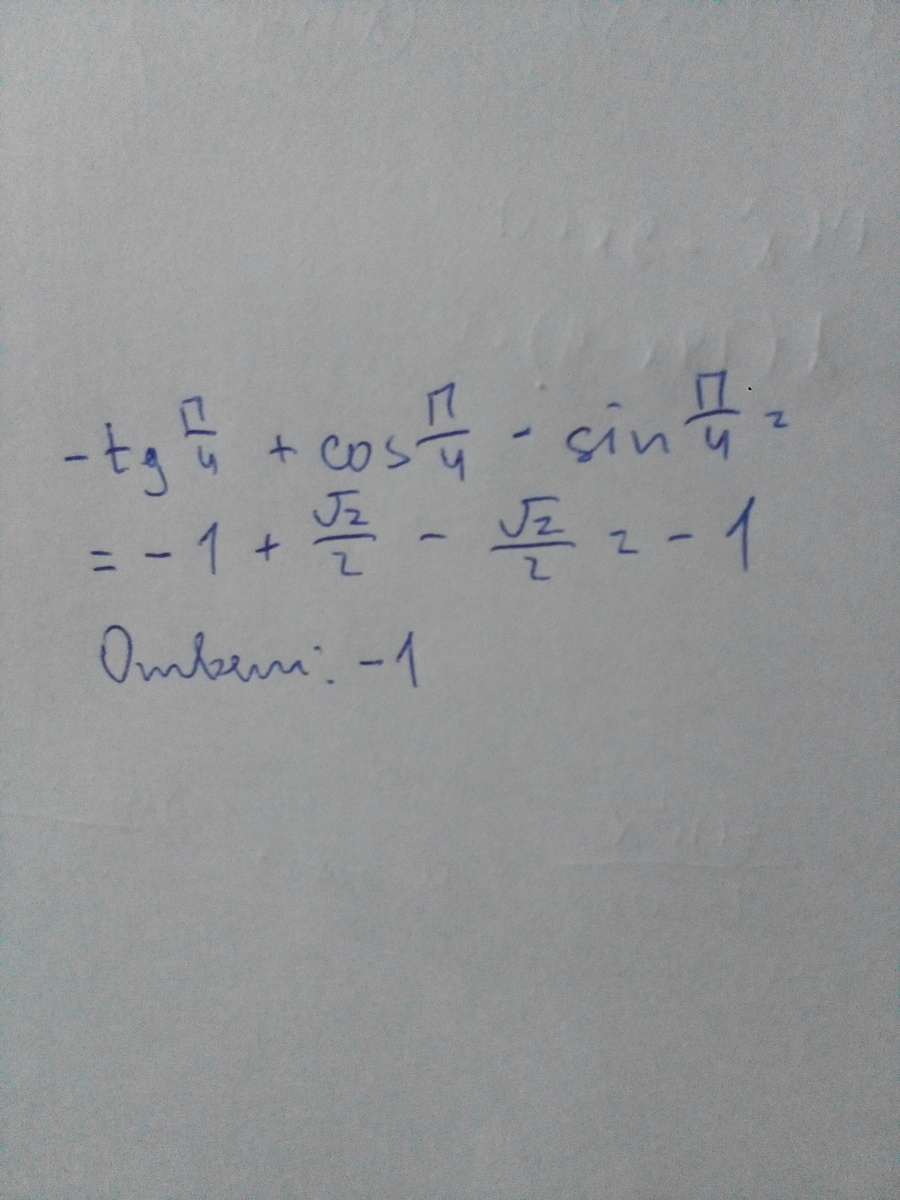 -tg π/4 + cos π/4 - sin π/4 =
= -1 + √2/2 - √2/2 = -1
Ответ: -1